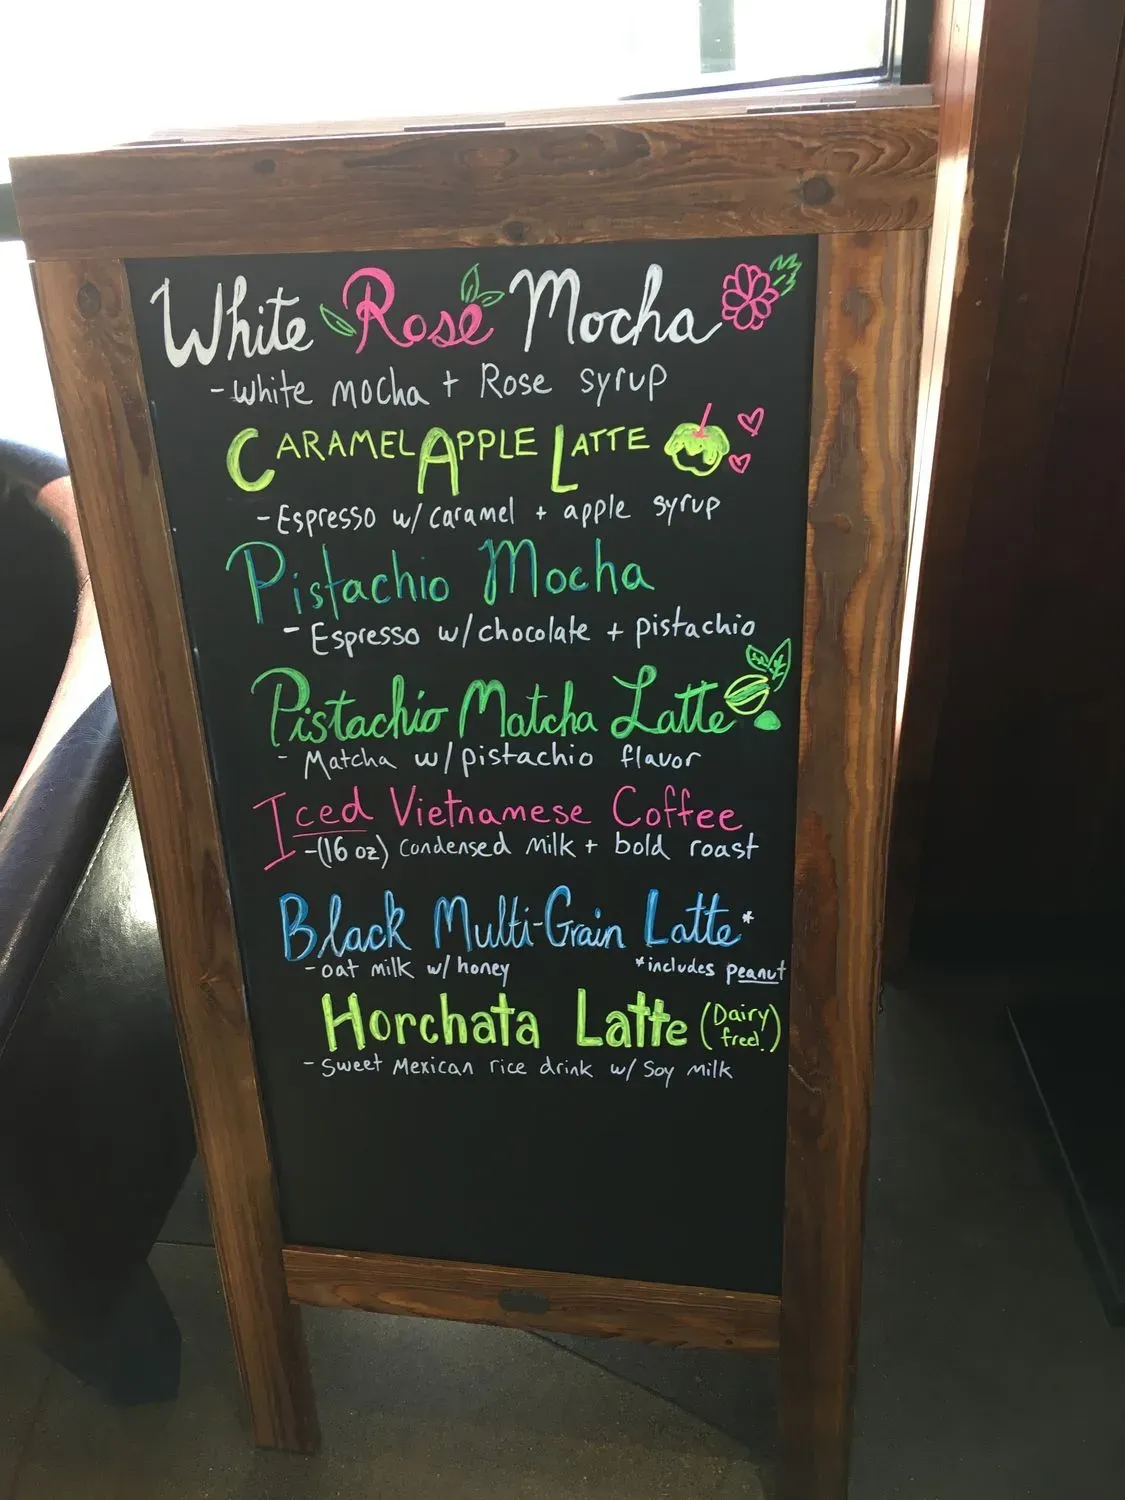 White Rose Mocha
- White mocha + Rose syrup
CARAMEL APPLE LATTE
- Espresso w/ caramel + apple syrup
Pistachio Mocha
- Espresso w/ chocolate + pistachio
Pistachio Matcha Latte
- Matcha w/ pistachio flavor
Iced Vietnamese Coffee
- (16 oz) condensed milk + bold roast
Black Multi-Grain Latte*
- oat milk w/ honey *includes peanut
Horchata Latte (Dairy free!)
- Sweet Mexican rice drink w/ Soy milk